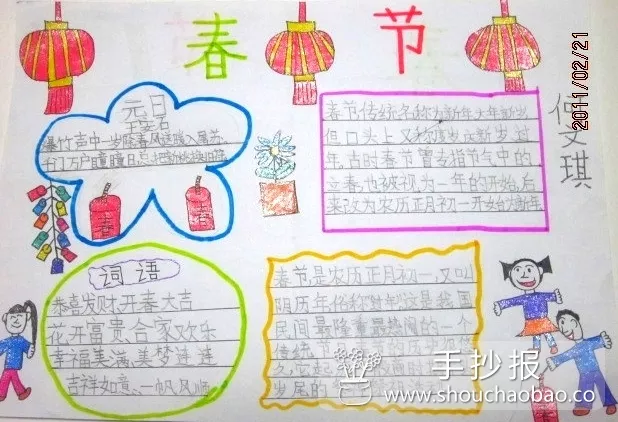 春节
2011/02/21
何文琪
元日
王安石
爆竹声中一岁除春风送暖入屠苏
千门万户曈曈日总把新桃换旧符
春节传统名称为新年大年新岁
但口头上又称度岁庆新岁过
年古时春节曾专指节气中的
立春,也被视为一年的开始,后
来改为农历正月初一开始为新年
词语
恭喜发财,开春大吉
花开富贵,合家欢乐
幸福美满,美梦连连
吉祥如意,一帆风顺
春节是农历正月初一,又叫
阴历年,俗称"过年"这是我国
民间最隆重最热闹的一个
传统节
岁尾的
手抄报
www.shouchaobao.co